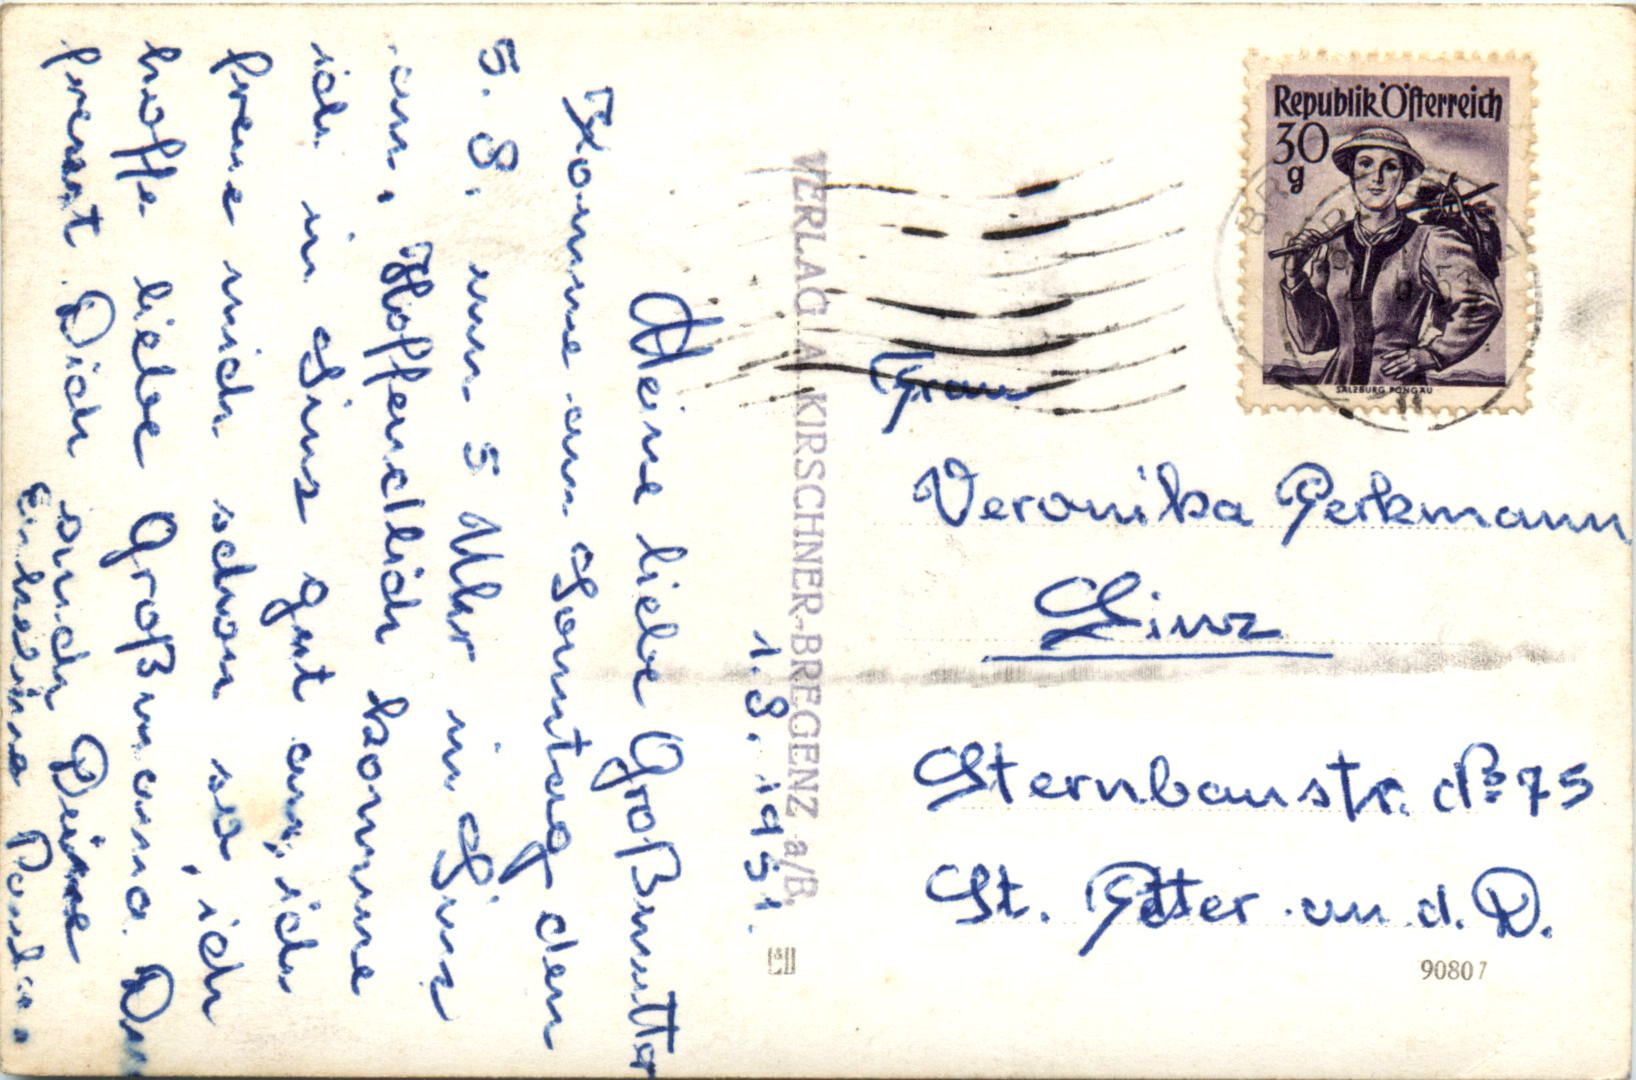 1.8.1951.
Meine liebe Großmutter
Komme am Sonntag den
5.8. um 5 Uhr in Linz
an. Hoffendlich komme
ich in Linz gut an, ich
freue mich schon so, ich
hoffe liebe Großmama Du
freust Dich auch Deine
Enkelina Paula.
VERLAG A. KIRSCHNER-BREGENZ a/B.
Republik Österreich
30
g
SALZBURG PONGAU
Frau
Veronika Perkmann
Linz
Sternbaustr. No 75
St. Petter an d. D.
90807